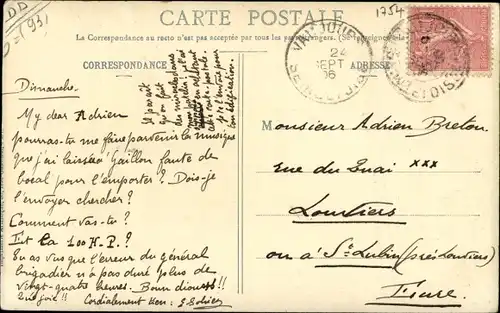 CARTE POSTALE
La Correspondance au recto n'est pas acceptée par tous les pays étrangers. (Se renseigner à la
CORRESPONDANCE
ADRESSE
1754
24
SEPT
06
Dimanche
My dear Adrien
pourras-tu me faire parvenir la musique
que j'ai laissée à Gaillon faute de
bocal pour l'emporter? Dois-je
l'envoyer chercher?
Comment vas-tu?
Et la 100 H.P.?
Tu as vu que l'erreur du général
brigadier n'a pas duré plus de
vingt-quatre heures. Boum dious!!
Cordialement
Il paraît
qu'on fait
des miracles dans
Monsieur Adrien Breton
rue du Quai xxx
Louviers
ou à St Lubin (près Louviers)
Eure.